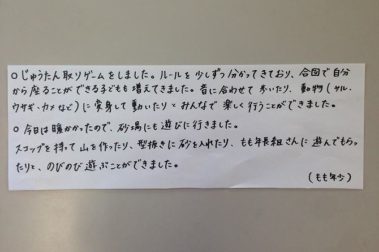 ○じゅうたん取りゲームをしました。ルールを少しずつ分かってきており、合図で自分
から座ることができる子どもも増えてきました。音に合わせて歩いたり、動物(サル、
ウサギ、カメなど)に変身して動いたりとみんなで楽しく行うことができました。
○今日は暖かかったので、砂場にも遊びに行きました。
スコップを持って山を作ったり、型抜きに砂を入れたり、もも年長組さんに遊んでもらっ
たりと、のびのび遊ぶことができました。
(もも年少)